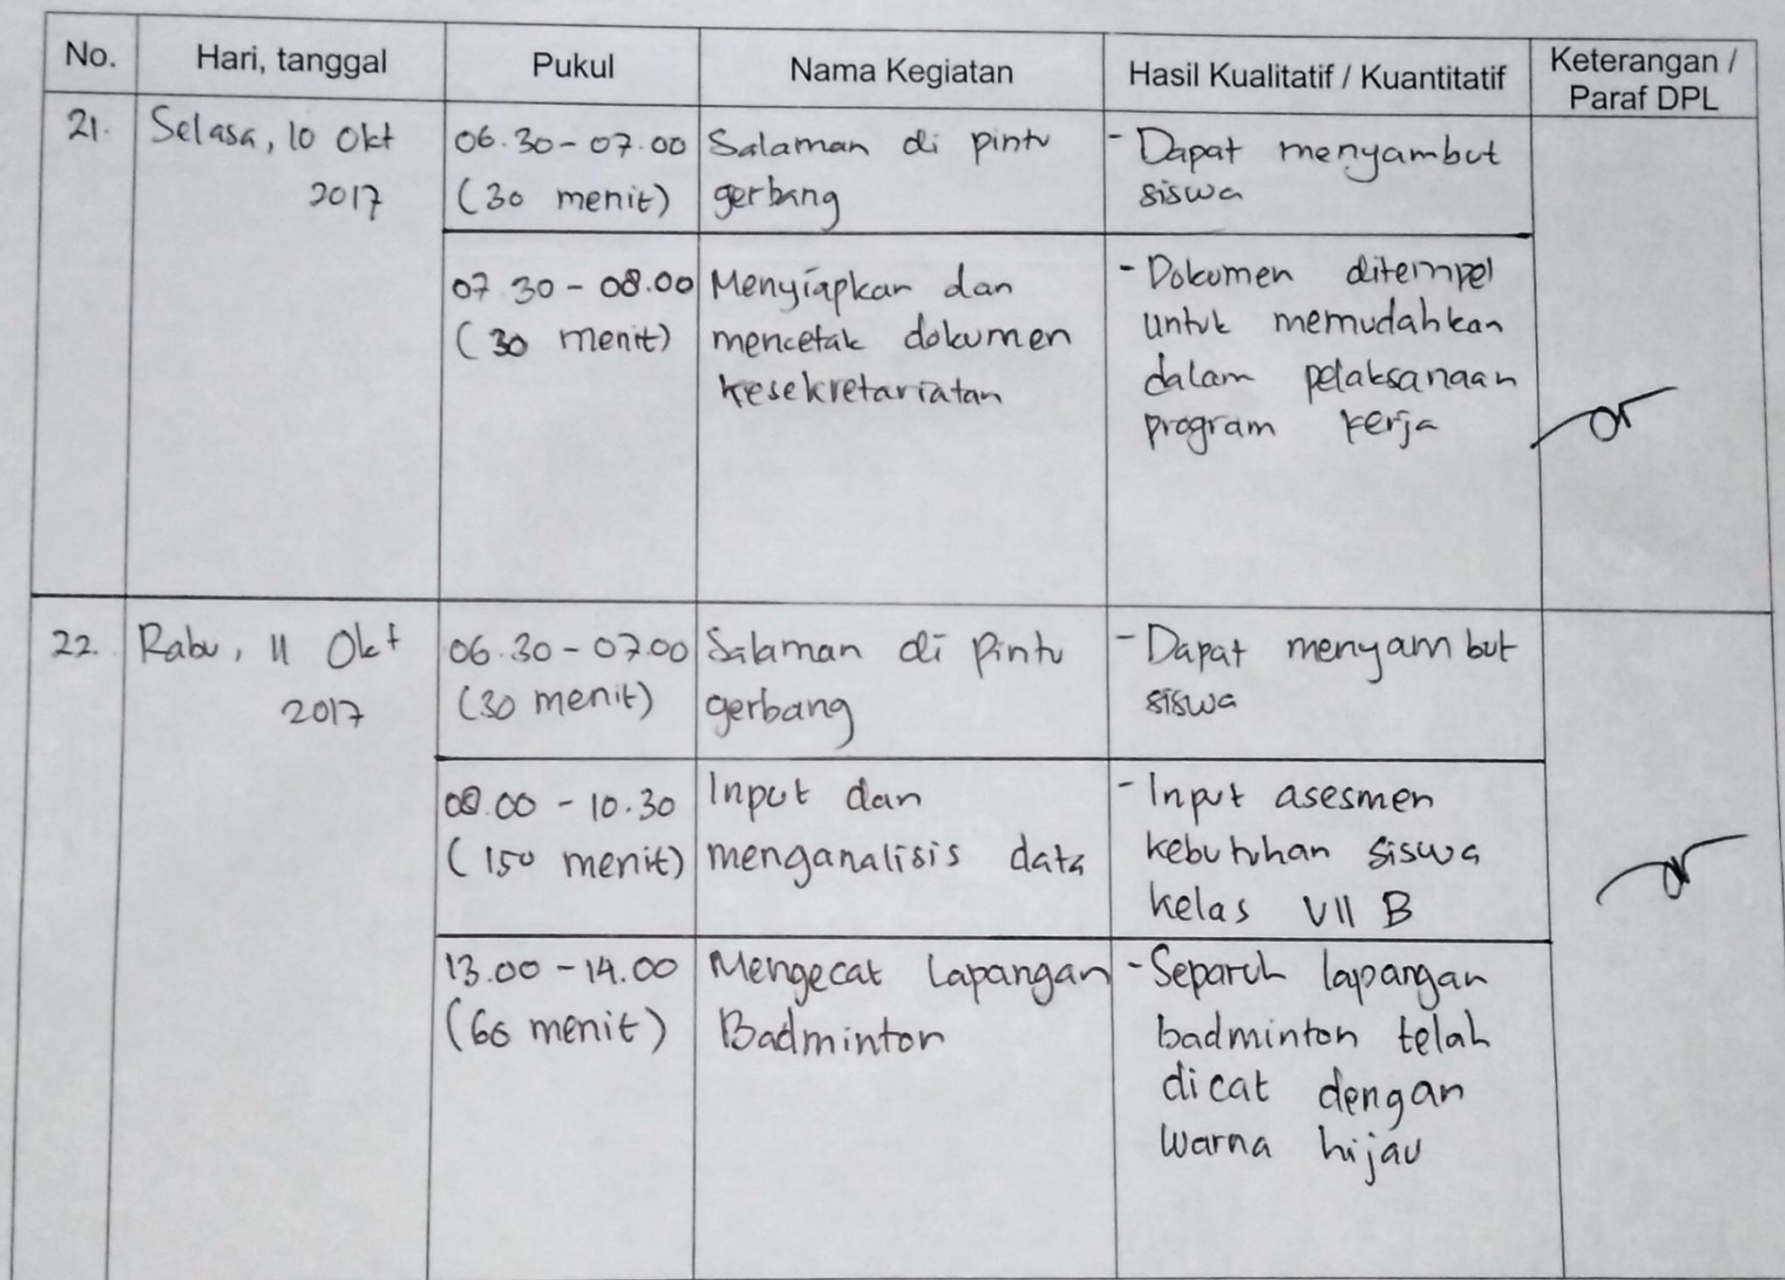 No. Hari, tanggal Pukul Nama Kegiatan Hasil Kualitatif / Kuantitatif Keterangan / Paraf DPL
21. Selasa, 10 Okt
2017
06.30 - 07.00
(30 menit)
Salaman di pintu
gerbang
- Dapat menyambut
siswa
07.30 - 08.00
(30 menit)
Menyiapkan dan
mencetak dokumen
kesekretariatan
- Dokumen ditempel
untuk memudahkan
dalam pelaksanaan
program kerja
22. Rabu, 11 Okt
2017
06.30 - 07.00
(30 menit)
Salaman di pintu
gerbang
- Dapat menyambut
siswa
08.00 - 10.30
(150 menit)
Input dan
menganalisis data
- Input asesmen
kebutuhan siswa
kelas VII B
13.00 - 14.00
(60 menit)
Mengecat Lapangan
Badminton
- Separuh lapangan
badminton telah
dicat dengan
warna hijau